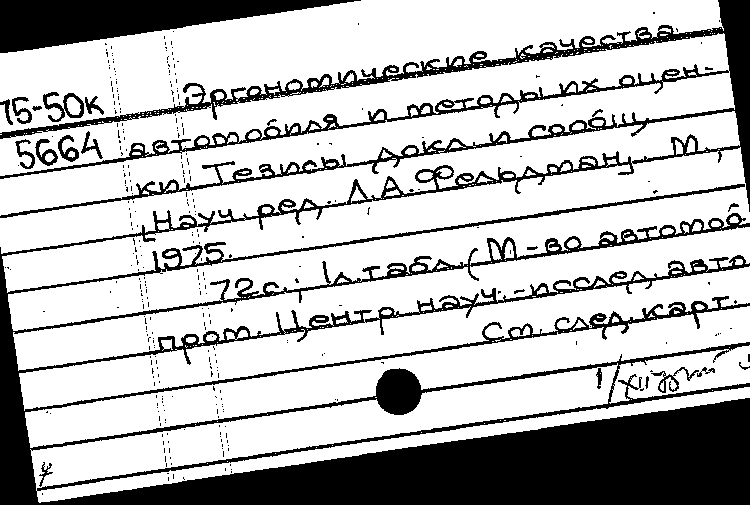 75-50к Эргономические качества
5664 автомобиля и методы их оцен-
ки. Тезисы докл. и сообщ.
[Науч. ред. Л.А. Фельдман]. М.,
1975.
72с.; 1л.табл. (М-во автомоб.
пром. Центр. науч.-исслед. авто
См. след. карт.